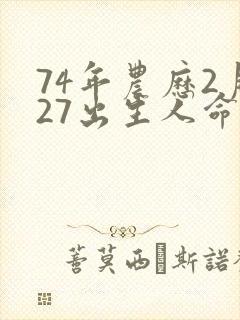 74年農歷2月
27出生人命
蓍莫西·斯諾